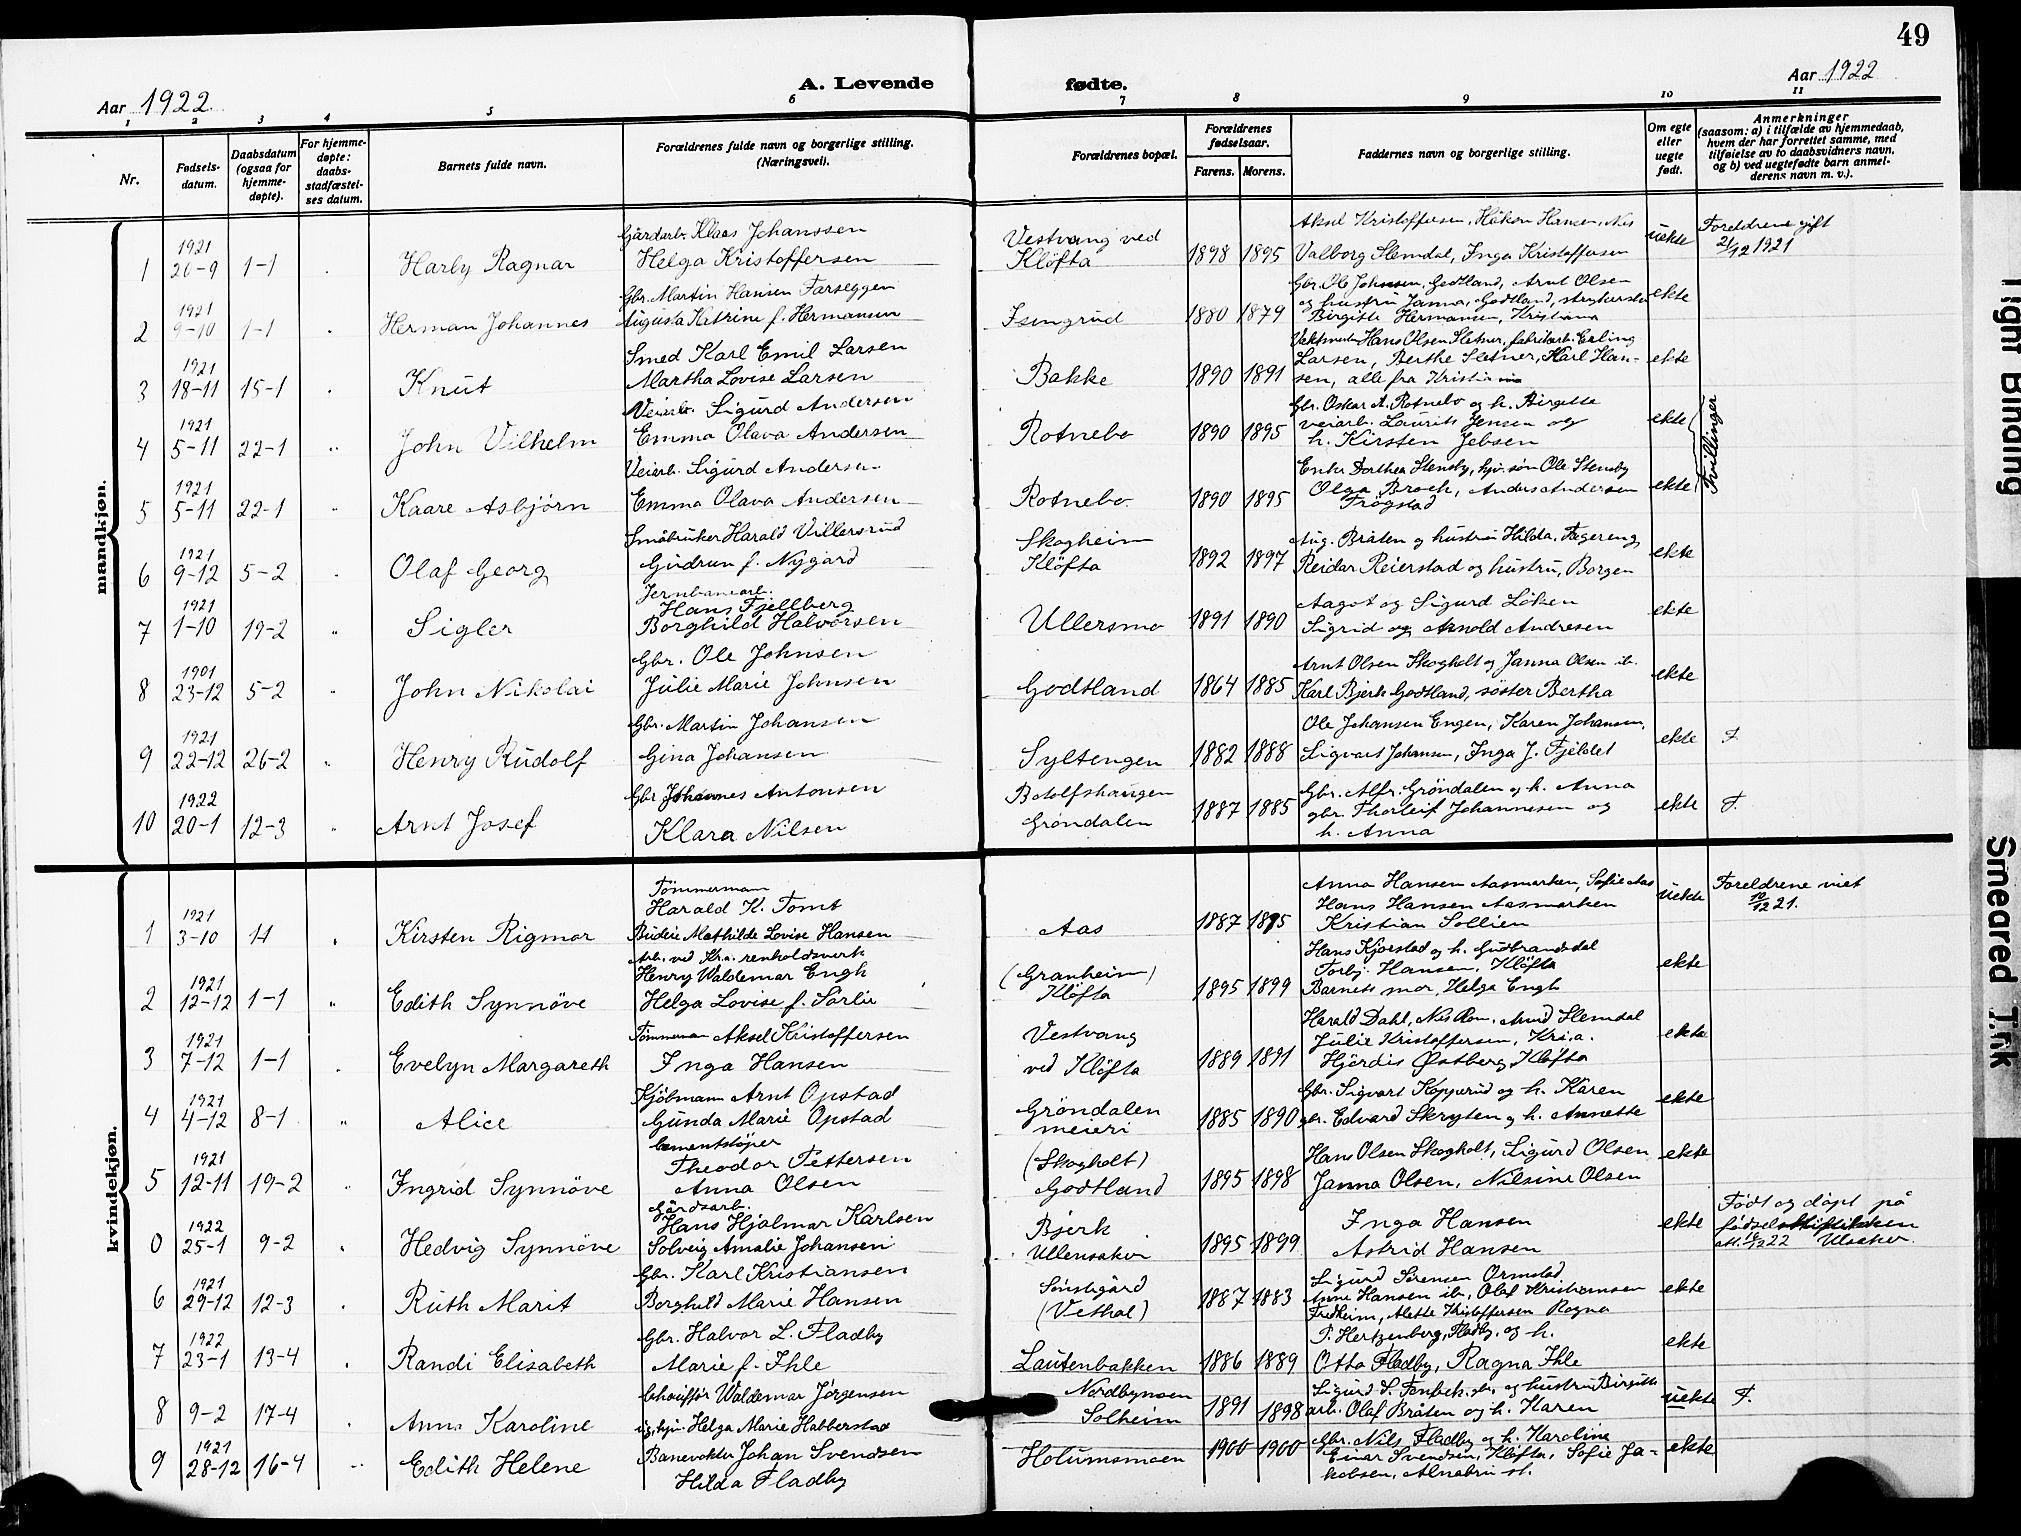 49
Aar 1922.
A. Levende
fødte.
Aar 1922
1 2 3 4 5 6 7 8 9 10 11
Nr.
Fødsels-
datum.
Daabsdatum
(ogsaa for
hjemme-
døpte).
For hjemme-
døpte:
daabs-
stadfæstel-
ses datum.
Barnets fulde navn.
Forældrenes fulde navn og borgerlige stilling.
(Næringsvei).
Forældrenes bopæl.
Forældrenes
fødselsaar.
Farens. Morens.
Faddernes navn og borgerlige stilling.
Om egte
eller
uegte
født.
Anmerkninger
(saasom: a) i tilfælde av hjemmedaab,
hvem der har forrettet samme, med
tilføielse av to daabsvidners navn,
og b) ved uegtefødte barn anmel-
derens navn m. v.).
mandkjøn.
1
1921
20-9
1-1
Harby Ragnar
Gårdarb. Klaas Johanssen
Helga Kristoffersen
Vestvang ved
Kløfta
1898 1895
Aksel Kristoffersen, Håkon Hansen, Nes
Valborg Slemdal, Inga Kristoffersen
uekte
Foreldrene gift
21/12 1921
2
1921
9-10
1-1
Herman Johannes
Gbr. Martin Hansen Farseggen
Augusta Katrine f. Hermansen
Isingrud
1880 1879
Gbr. Ole Johnsen, Godtland, Arnt Olsen
og hustru Janna, Godtland,
Birgitte Hermansen, Kristiana
ekte
3
1921
18-11
15-1
Knut
Smed Karl Emil Larsen
Martha Lovise Larsen
Bakke
1890 1891
Hans Olsen Sletner, fabrikarb. Erling
Larsen, Berthe Sletner, Karl Han-
sen, alle fra Kristiania
ekte
4
1921
5-11
22-1
John Vilhelm
Veiarb. Sigurd Andersen
Emma Olava Andersen
Rotnebo
1890 1895
Gbr. Oskar A. Rotnebo og h. Birgitte
veiarb. Laurits Jensen og
h. Kirsten Jebsen
ekte
Tvillinger
5
1921
5-11
22-1
Kaare Asbjørn
Veiarb. Sigurd Andersen
Emma Olava Andersen
Rotnebo.
1890 1895
Enke Dorthea Stensby, hjv. søn Ole Stensby
Olga Broch, Anders Andersen
Frøgstad
ekte
6
1921
9-12
5-2
Olaf Georg
Småbruker Harald Villersrud
Gudrun f. Nygård
Skogheim
Kløfta
1892 1897
Aug. Bråten og hustru Hilda, Fagereng,
Reidar Reierstad og hustru, Borgen
ekte
7
1921
1-10
19-2
Sigler
Jernbanearb.
Hans Fjellberg
Borghild Halvorsen
Ullersmo
1891 1890
Aagot og Sigurd Løken
Sigrid og Arnold Andresen
ekte
8
1901
23-12
5-2
John Nikolai
Gbr. Ole Johnsen
Julie Marie Johnsen
Godtland
1864 1885
Arnt Olsen Skogholt og Janna Olsen ib.
Karl Bjerke Godtland, søster Bertha
ekte
9
1921
22-12
26-2
Henry Rudolf
Gbr. Martin Johansen
Gina Johansen
Syltengen
1882 1888
Ole Johansen Engen, Karen Johansen,
Sigvart Johansen, Inga J. Fjeldet
ekte
F.
10
1922
20-1
12-3
Arnt Josef
Gbr. Johannes Antonsen
Klara Nilsen
Botolfshaugen
Grøndalen
1887 1885
Gbr. Alfr. Grøndalen og h. Anna
gbr. Thorleif Johannesen og
h. Anna
ekte
F.
kvindekjøn.
1
1921
3-10
Kirsten Rigmor
Tømmermann
Harald K. Tomt
Budeie Mathilde Lovise Hansen
Aas
1887 1895
Anna Hansen Aasmarken, Sofie Aas
Hans Hansen Aasmarken
Kristian Sollien
uekte
Foreldrene viet
10/12 21.
2
1921
12-12
1-1
Edith Synnøve
Arb. ved Kra. renholdsverk
Henry Waldemar Engh
Helga Lovise f. Sørlie
(Granheim)
Kløfta
1895 1899
Hans Kjorstad og h. Gudbrandsdal
Torbj. Hansen, Kløfta
Barnets mor, Helga Engh
ekte
3
1921
7-12
1-1
Evelyn Margareth
Tømmerman Aksel Kristoffersen
Inga Hansen
Vestvang
ved Kløfta
1889 1891
Harald Dahl, Nes Rom. Arnd Slemdal
Julie Kristoffersen, Kr.a.
Hjørdis Østberg, Kløfta
ekte
4
1921
4-12
8-1
Alice
Kjølmann Arnt Opstad
Gunda Marie Opstad
Grøndalen
meieri
1885 1890
Gbr. Sigvart Kopperud og h. Karen
gbr. Edvard Skryten og h. Annette
ekte
5
1921
12-11
19-2
Ingrid Synnøve
Cementstøper
Theodor Pettersen
Anna Olsen
(Skogholt)
Godtland
1895 1898
Hans Olsen Skogholt, Sigurd Olsen
Janna Olsen, Nilsine Olsen
ekte
0
1922
25-1
9-2
Hedvig Synnøve
Gårdsarb.
Hans Hjalmar Karlsen
Solveig Amalie Johansen
Bjerk
Ullensaker
1895 1899
Inga Hansen
Astrid Hansen
ekte
Født og døpt på
6
1921
29-12
12-3
Ruth Marit
Gbr. Karl Kristiansen
Borghild Marie Hansen
(Vethal)
1887 1883
Sigurd Sørensen Ormstad
Anne Hansen ib., Olaf Kristiansen
Fredheim, Alette Kristoffersen Rogna
ekte
7
1922
23-1
13-4
Randi Elisabeth
Gbr. Halvor L. Fladby
Marie f. Ihle
Lautenbakken
1886 1889
P. Hertzenberg, Fladby, og h.
Otto Fladby, Ragna Ihle
ekte
8
9-2
17-4
Anna Karoline
Chauffør Waldemar Jørgensen
ug. kv. Helga Marie Habberstad
Nordbymoen
Solheim
1891 1898
arb. Olaf Bråten og h. Karen
uekte
F.
9
1921
28-12
16-4
Edith Helene
Banevokter Johan Svendsen
Hilda Fladby
Holumsmoen
1900 1900
Gbr. Nils Fladby og h. Karoline
Einar Svendsen, Kløfta, Sofie Ja-
kobsen, Alnabru st.
ekte
Tight Binding
Smeared Ink